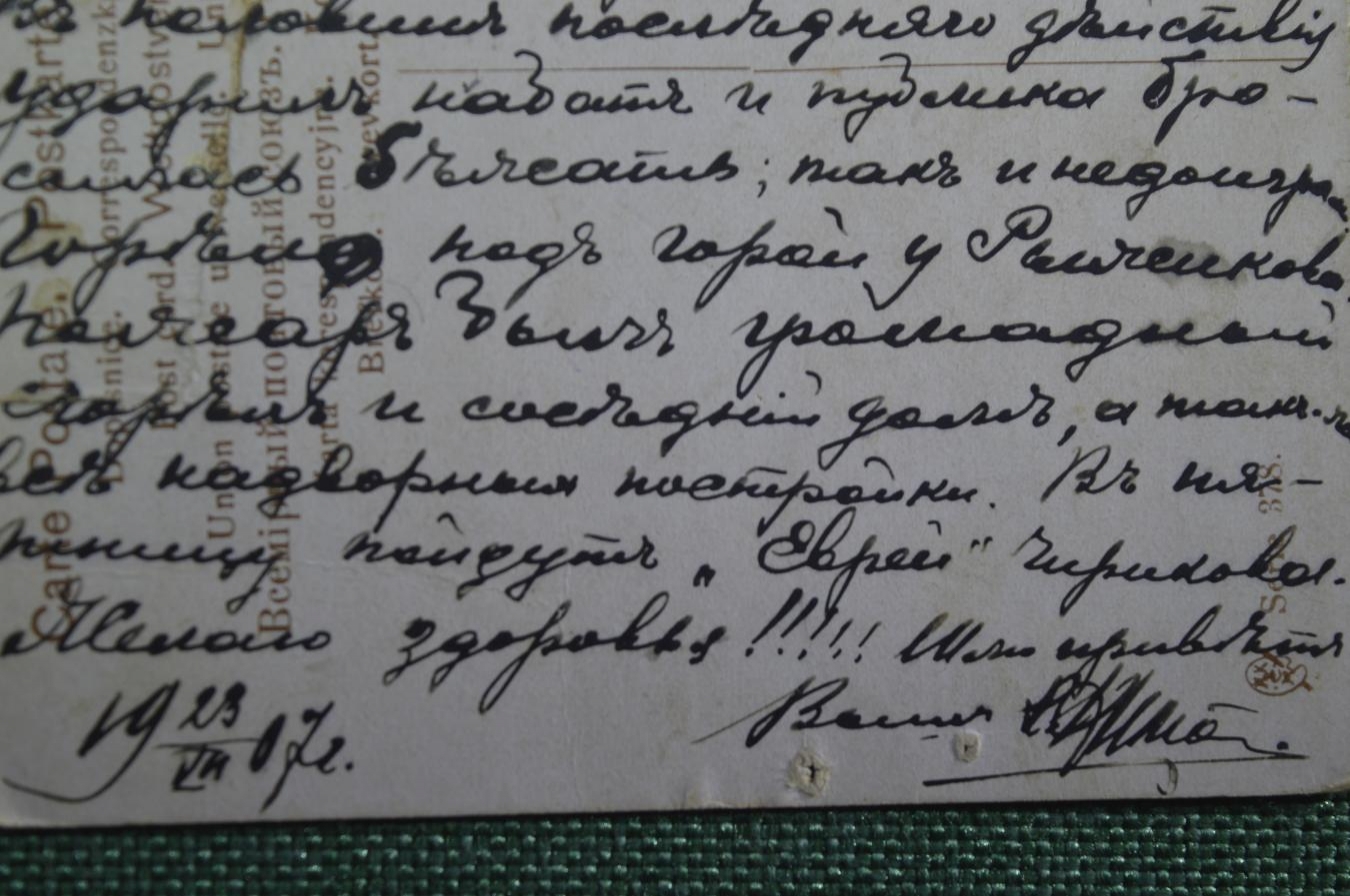 Въ половинѣ послѣдняго дѣйствія
ударили набатъ и публика бро-
силась бѣжать; такъ и недоиграли.
Горѣло подъ горой у Рынчикова.
Пожаръ былъ громадный
сгорѣлъ и сосѣдній домъ, а также
всѣ надворныя постройки. Въ пя-
тницу пойдутъ „Евреи" Чирикова.
Желаю здоровья!!!!! Шлю привѣтъ
Вашъ
19 23/VII 07 г.
Carte Postale. Postkarte
Dopisnice. Korrespondenzka
Post card. Weltpostv
Union postale universelle. Un
Всемірный почтовый союзъ.
Karta korespondencyjna.
Brefkort. Brevkort
Serie 378.